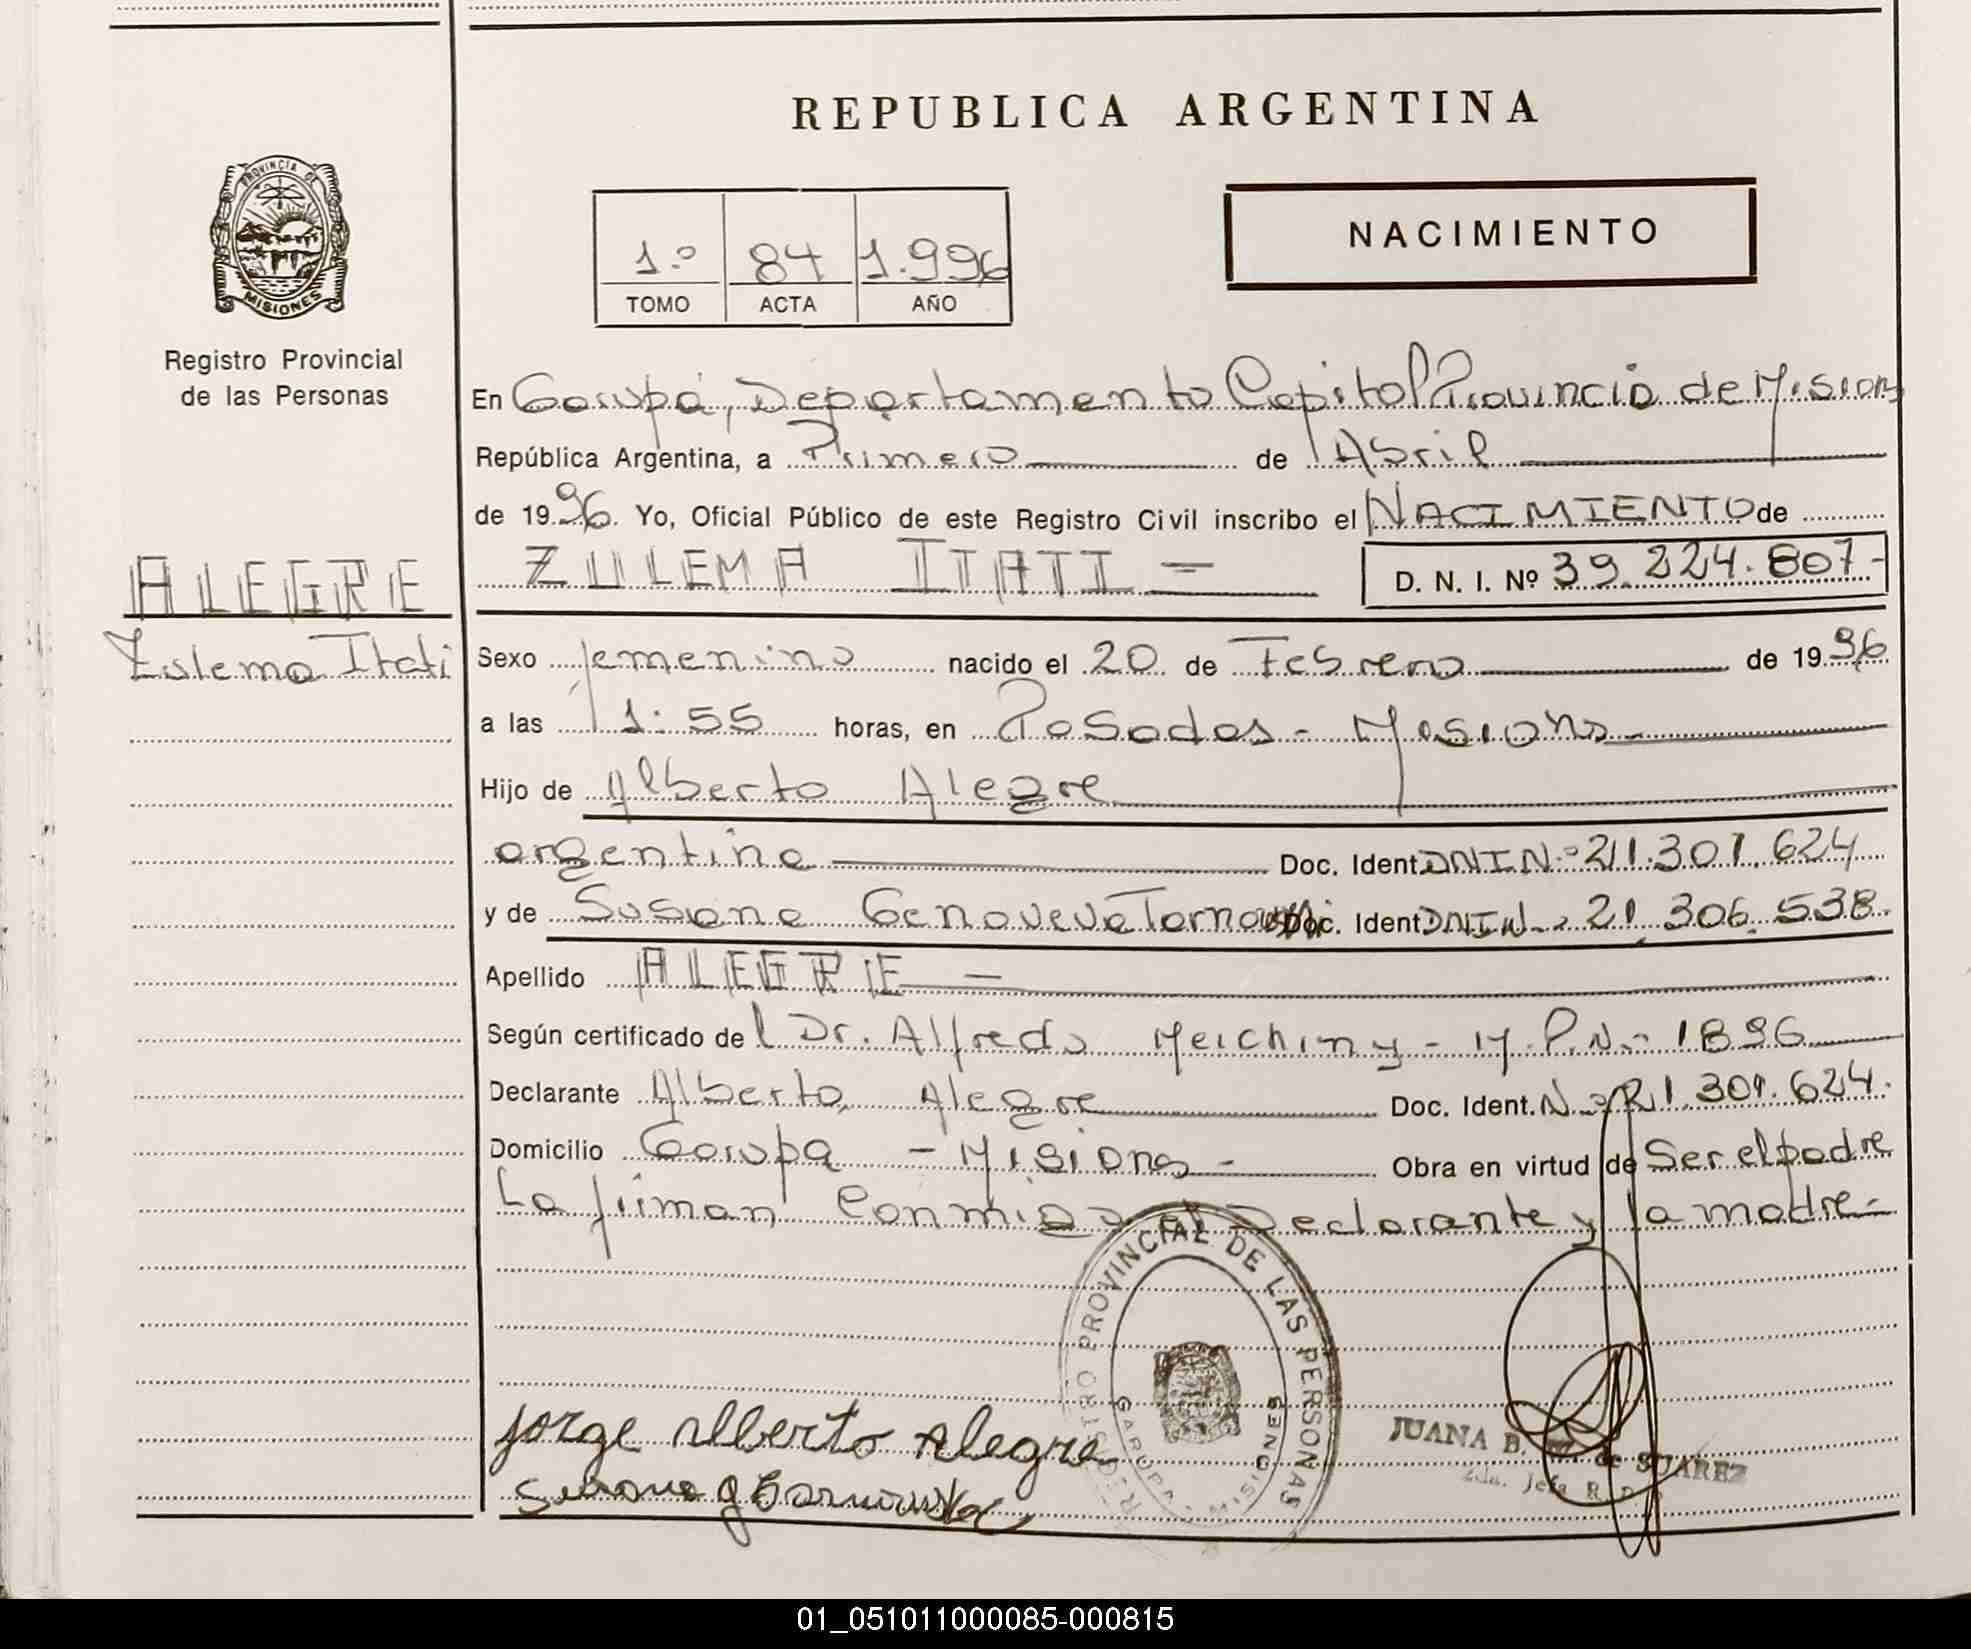 REPUBLICA ARGENTINA
PROVINCIA DE
MISIONES
Registro Provincial
de las Personas
1.º 84 1.996
TOMO ACTA AÑO
NACIMIENTO
En Garupá, Departamento Capital Provincia de Misiones
República Argentina, a Primero de Abril
de 1996. Yo, Oficial Público de este Registro Civil inscribo el NACIMIENTO de
ZULEMA ITATI = D. N. I. Nº 39.224.807-
ALEGRE
Zulema Itati
Sexo femenino nacido el 20 de Febrero de 1996
a las 1:55 horas, en Posadas - Misiones
Hijo de Alberto Alegre
argentina Doc. Ident. DNI Nº 21.301.624
y de Susana Genoveva Doc. Ident. DNI Nº 21.306.538.
Apellido ALEGRE -
Según certificado del Dr. Alfredo Meichiny - M.P.Nº 1896
Declarante Alberto Alegre Doc. Ident. Nº 21.301.624.
Domicilio Garupa - Misiones - Obra en virtud de Ser el padre
La firman Conmigo el Declarante y la madre -
REGISTRO PROVINCIAL DE LAS PERSONAS
GARUPA - MISIONES
Jorge Alberto Alegre
JUANA B. de SUAREZ
2da. Jefa R. P.
01_051011000085-000815